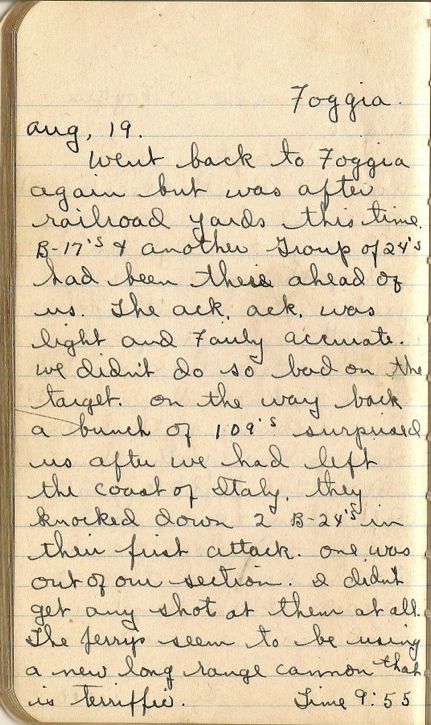 Foggia.
Aug, 19.
Went back to Foggia
again but was after
railroad yards this time.
B-17's & another Group of 24's
had been there ahead of
us. The ack, ack, was
light and Fairly accurate.
we didn't do so bad on the
target. on the way back
a bunch of 109's surprised
us after we had left
the coast of Italy, they
knocked down 2 B-24's in
their first attack. one was
out of our section. I didn't
get any shot at them at all.
The Jerrys seem to be using
a new long range cannon that
is terriffic. Time 9:55